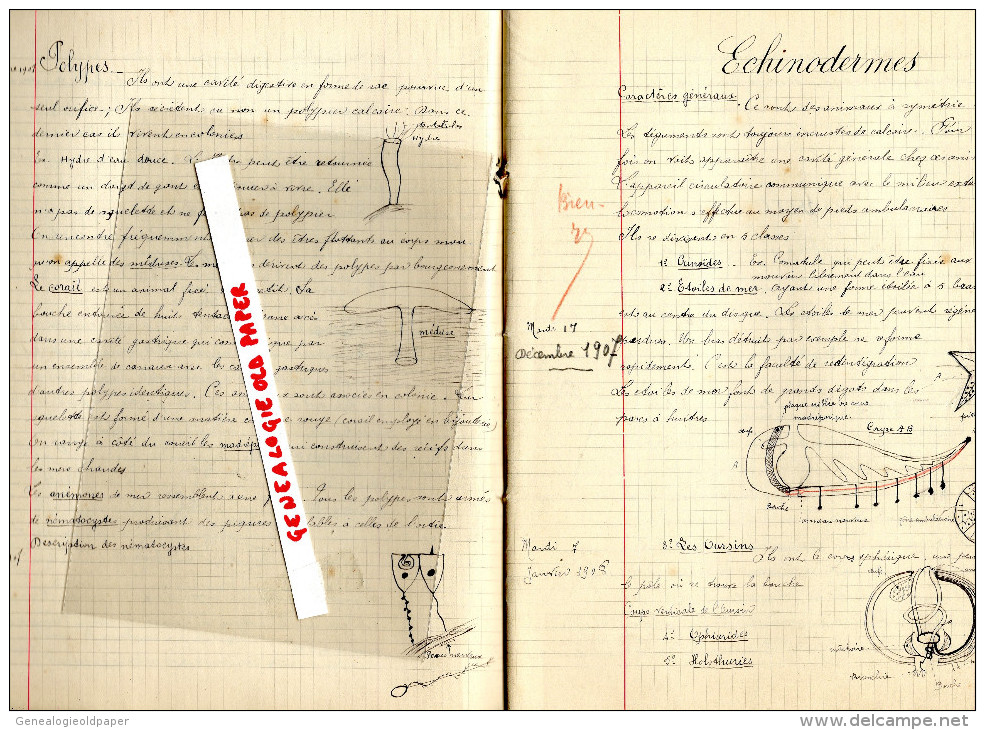 Polypes.
Ils ont une cavité digestive en forme de sac pourvue d'un
seul orifice; Ils secrètent ou non un polypier calcaire. Dans ce
dernier cas ils vivent en colonies
Ex. Hydre d'eau douce. peut être retournée
comme un doigt de gants et à vivre. Elle
n'a pas de squelette et ne pas de polypier
On rencontre fréquemment des êtres flottants au corps mou
qu'on appelle des méduses. Les dérivent des polypes par bourgeonnement
Le corail est un animal fixé La
bouche entourée de huit tentacules
dans une cavité gastrique qui par
un ensemble de canaux avec les gastriques
d'autres polypes identiques. Ces sont associés en colonie. Leur
squelette est formé d'une matière rouge (corail employé en bijouterie)
On range à côté du corail les qui construisent des récifs dans
les mers chaudes
Les anémones de mer ressemblent à une Tous les polypes sont armés
de nématocystes produisant des piqures à celles de l'ortie.
Description des nématocystes
Hydre
méduse
GENEALOGIE OLD PAPER
Bien
Mardi 17
Décembre 1907
Mardi 7
Janvier 1908
Echinodermes
Caractères généraux. Ce sont des animaux à symétrie
Les téguments sont toujours incrustés de calcaire. Pour
fois on voit apparaître une cavité générale chez ces anim
L'appareil circulatoire communique avec le milieu exter
locomotion s'effectue au moyen de pieds ambulacraires
Ils se divisent en 5 classes
1º Crinoïdes. Ex. Comatule qui peut être fixée aux
mouvoir librement dans l'eau
2º Etoiles de mer, ayant une forme étoilée à 5 bras
est au centre du disque. Les étoiles de mer peuvent régéné
perdues. Un bras détruit par exemple se reforme
rapidement. C'est la faculté de redintégration
Les étoiles de mer font de grands dégâts dans les
parcs à huitres
plaque
madréporique
Coupe AB
A
B
Bouche
anneau nerveux
3º Les Oursins Ils ont le corps sphérique, une peau
le pôle où se trouve la bouche
Coupe verticale de l'Oursin
4º Ophiurides
5º Holothuries
Bouche
Genealogieoldpaper
www.delcampe.net